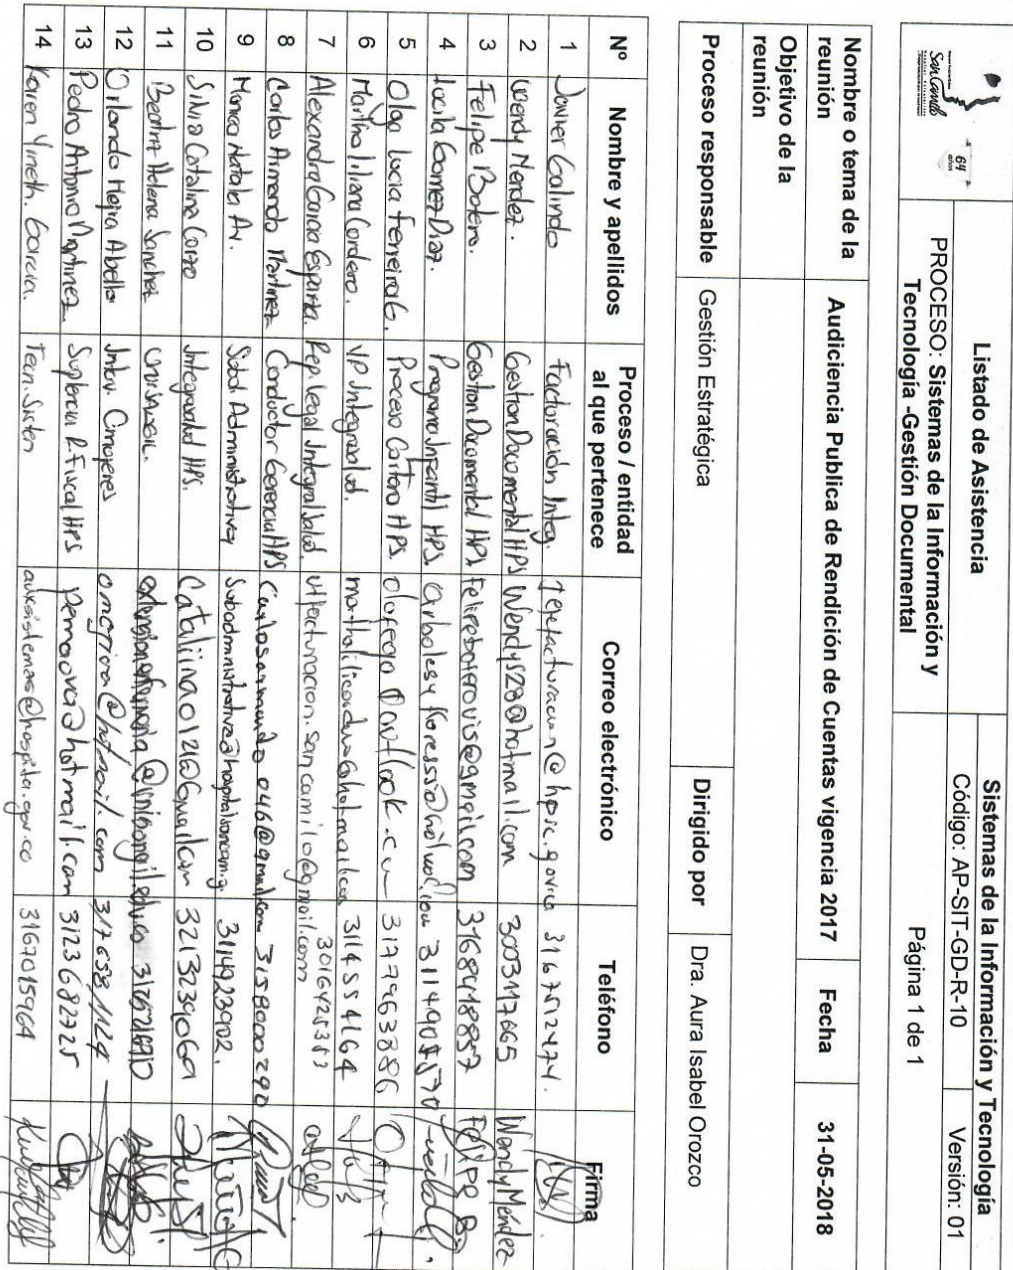 San Camilo
64 años
Listado de Asistencia
PROCESO: Sistemas de la Información y
Tecnología -Gestión Documental
Sistemas de la Información y Tecnología
Código: AP-SIT-GD-R-10 Versión: 01
Página 1 de 1
Nombre o tema de la reunión Audiciencia Publica de Rendición de Cuentas vigencia 2017 Fecha 31-05-2018
Objetivo de la reunión
Proceso responsable Gestión Estratégica Dirigido por Dra. Aura Isabel Orozco
Nº Nombre y apellidos Proceso / entidad al que pertenece Correo electrónico Teléfono Firma
1 Javier Galindo Facturación Integ. 3167512474.
2 Wendy Mendez. Gestion Documental HPS Wendys280@hotmail.com 3003117665 Wendy Méndez
3 Felipe Botero. Gestion Documental HPS Felireboterovis@gmail.com 3168918857 Felipe B.
4 Lucila Gomez Diaz. Programa Infantil HPS
5 Olga Lucia Ferreira G. Proceso Cartera HPS. 3177963886
6 Martha Liliana Cordero. VP Integrasalud. 3114554164
7 Alexandra Garcia Esparta. Rep Legal Integral Salud. 3016425353
8 Carlos Armando Martinez Conductor Gerencia HPS Carlosarmando046@gmail.com 3158000290
9 Monica Natalia Av. Subd. Administrativa 3114923902.
10 Silvia Catalina Corzo Integrasalud HPS. Cataliinao1216@gmail.com 3213239060
11 Beatriz Helena Sanchez Unisangil.
12 Orlando Mejia Abello 3176581124
13 Pedro Antonio Martinez. Suplencia R. Fiscal HPS pemaova@hotmail.com 3123682725
14 Karen Yineth. Garcia. Tecn. Sisten auxsistemas@hospita.gov.co 3167015964